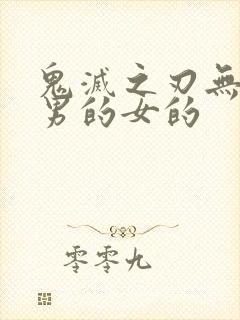 鬼滅之刃無
男的女的
零零九